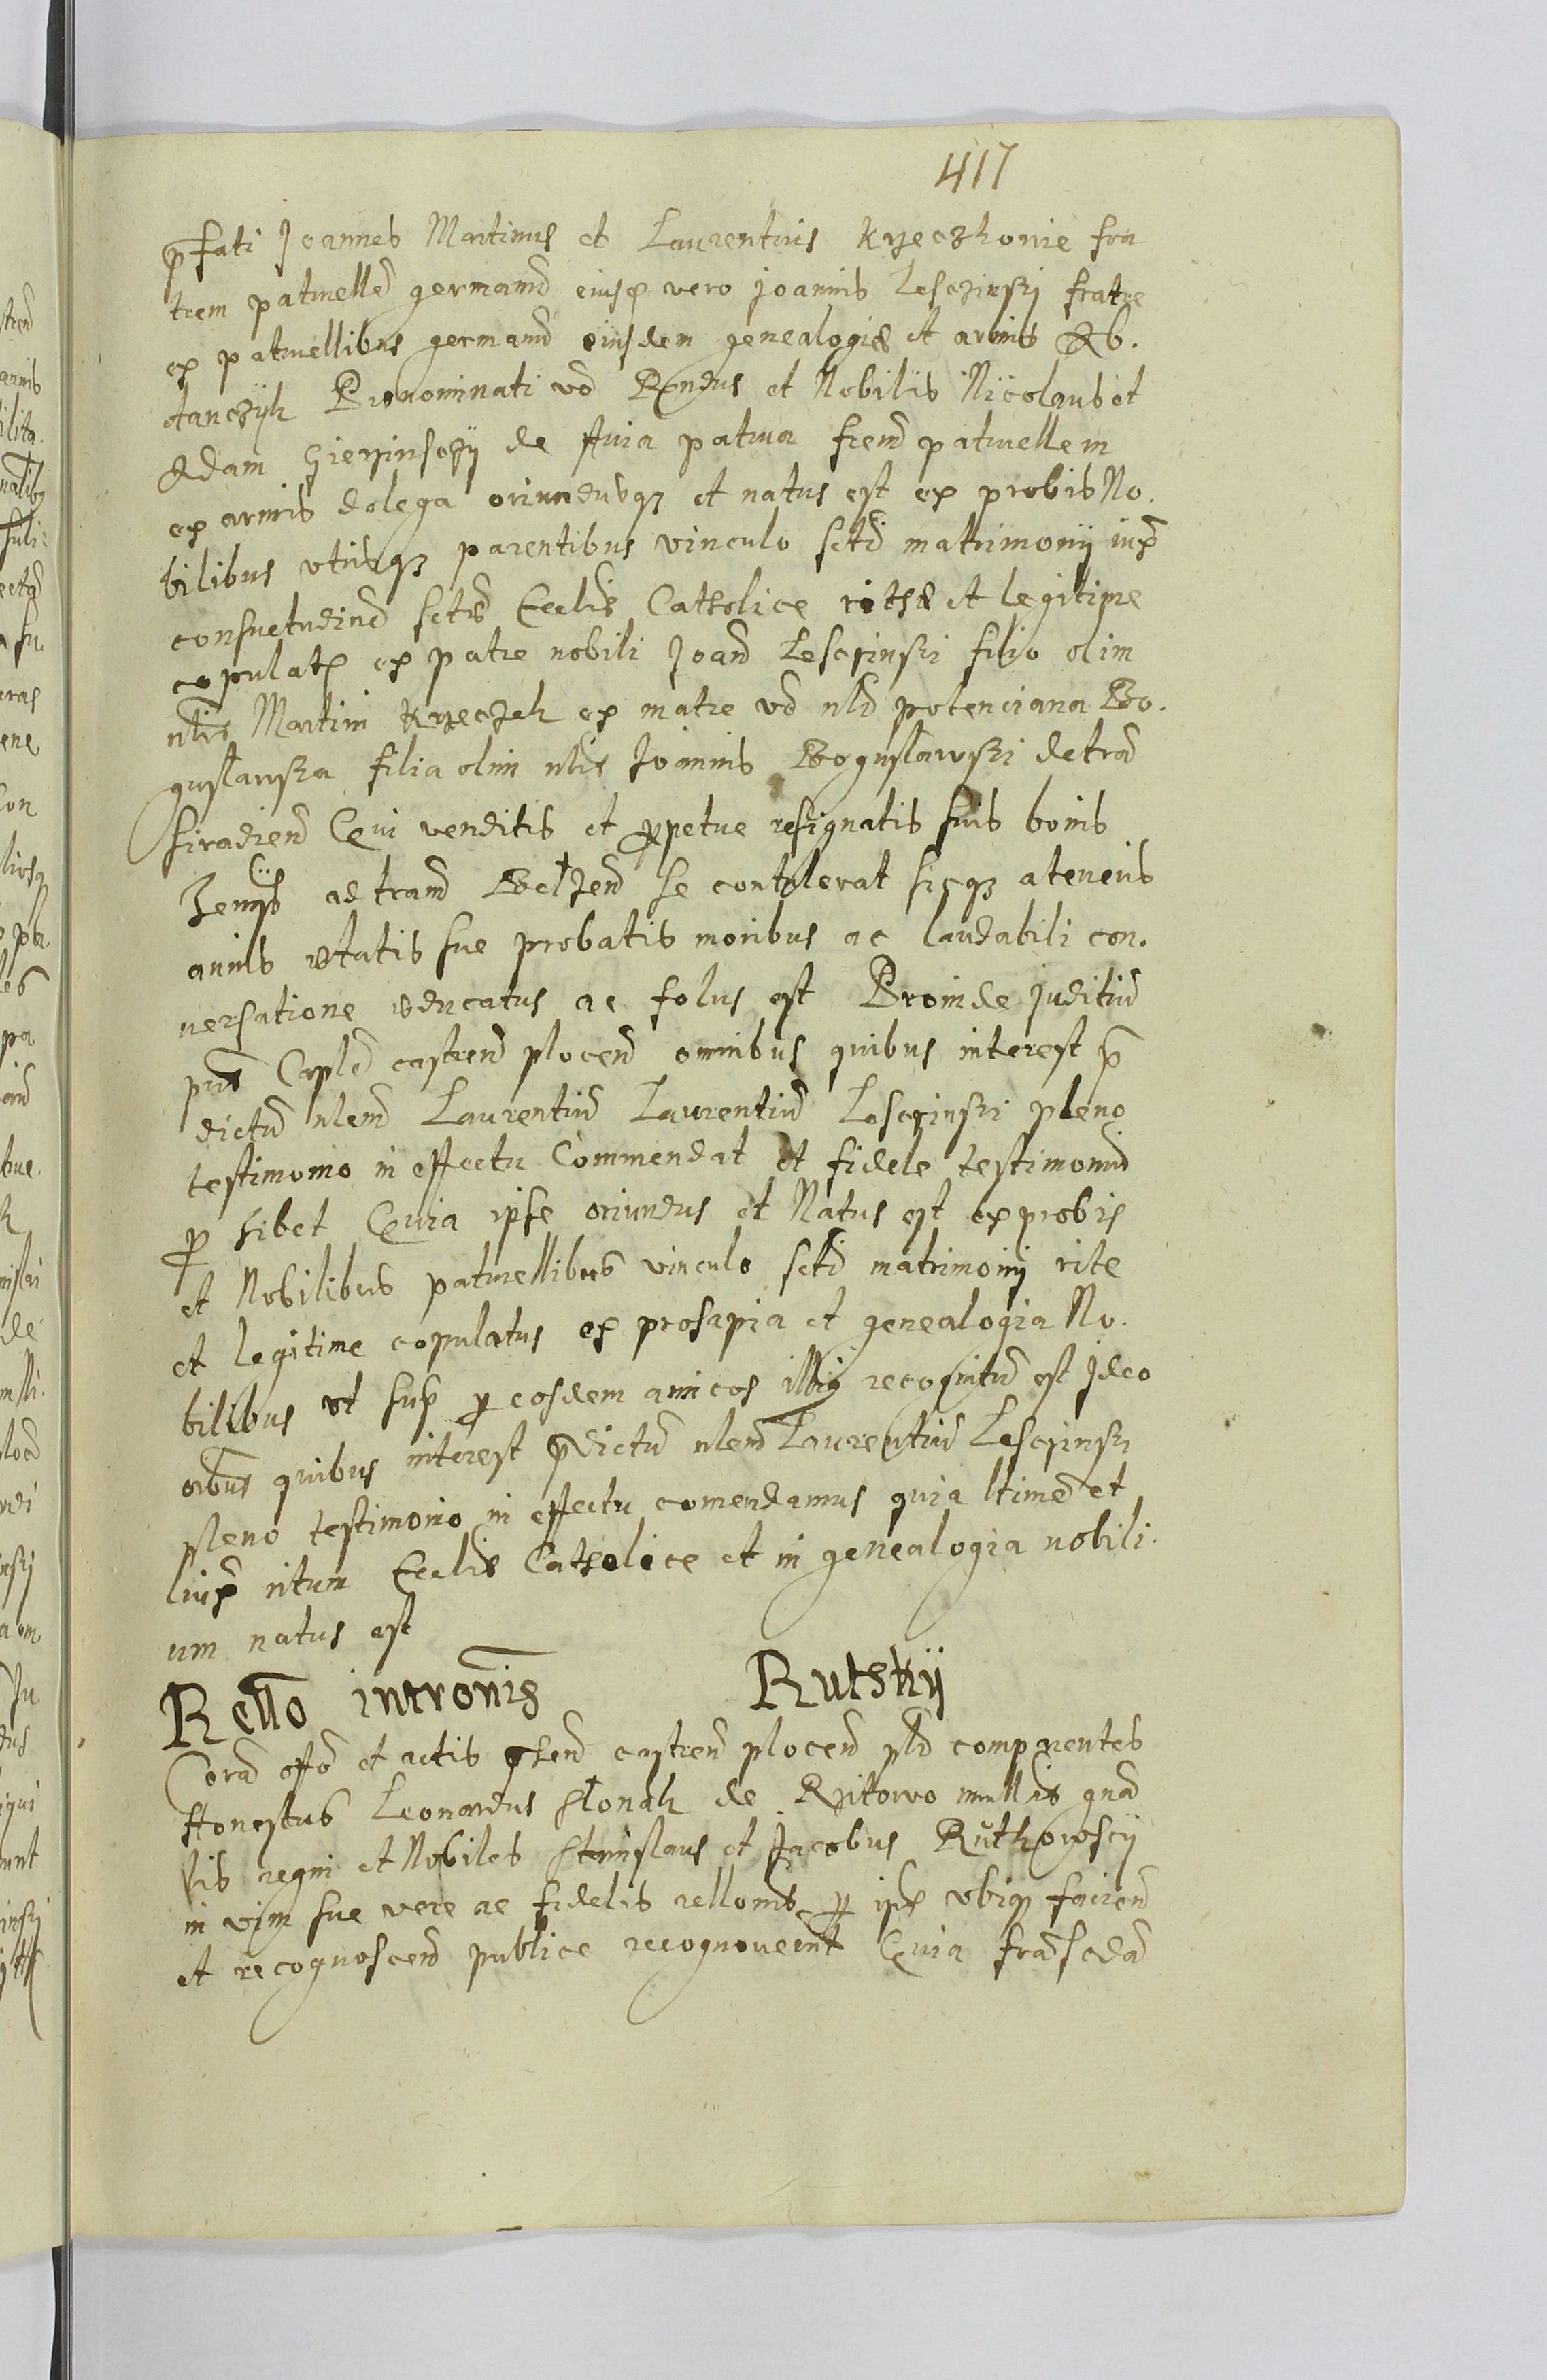 417
p̄fati Joannes Martinus et Laurentius Krzeczkowie fra
trem patruellē germanū eiusq̨ vero Joannis Lesczinski fratre
ex patruellibus germanū eiusdem genealogię et armis Ab.
dançzÿk Pronominati vō Rndus et Nobilis Nicolaus et
Adam de Avia patrua frem̄ patruellem
ex armis dolega oriundusqȝ et natus est ex probis No.
bilibus utrisqȝ parentibus vinculo sctī matrimonÿ iux̄
consuetudinē sctē Ecclīe Catholice rithæ et legitime
copulatꝭ ex patre nobili Joanē Lesczinski filio olim
nlīs Martini Krzeczek ex matre vō nlī potenciana Bo.
guslawska filia olim nlīs Joannis Boguslawski de trā
siradien̄ Qui venditis et ꝑpetue resignatis suis bonis
ad terram̄ Belzen̄ se contulerat sicqȝ a teneris
annis ętatis sue probatis moribus ac laudabili con.
versatione educatus ac solus est Proinde Juditiū
pn̄s Caplē castren̄ plocen̄ omnibus quibus interest p̄
dictū nlem̄ Laurentiū Laurentiū Lesczinski pleno
testimonio in effectu Commendat et fidele testimoniū
ꝑ hibet Quia ipse oriundus et Natus est ex probis
et Nobilibus patruellibus vinculo sctī matrimonÿ rite
et legitime copulatus ex prosapia et genealogia No.
bilibus ut sup̄ ꝑ eosdem amicos illiq recognitū est Ideo
oībus quibus interest p̄dictū nlem̄ Laurentiū Lesczinski
pleno testimonio in effectu comendamus quia ltime et
iux̄ ritum Ecclīe Catholice et in genealogia nobili.
um natus est
Rello intronīs Rutskÿ
Corā offō et actis pn̄tib castren̄ plocen̄ plr comparentes
Honestus Leonardus Słonak de Rzitowo mnllis gnā
lis regni et Nobiles Stanislaus et Jacobus Rutkowscÿ
in vim sue vere ac fidelis rellonis ꝑ ipōs ubiqȝ facien̄
et recognoscen̄ publice recognoverunt Quia